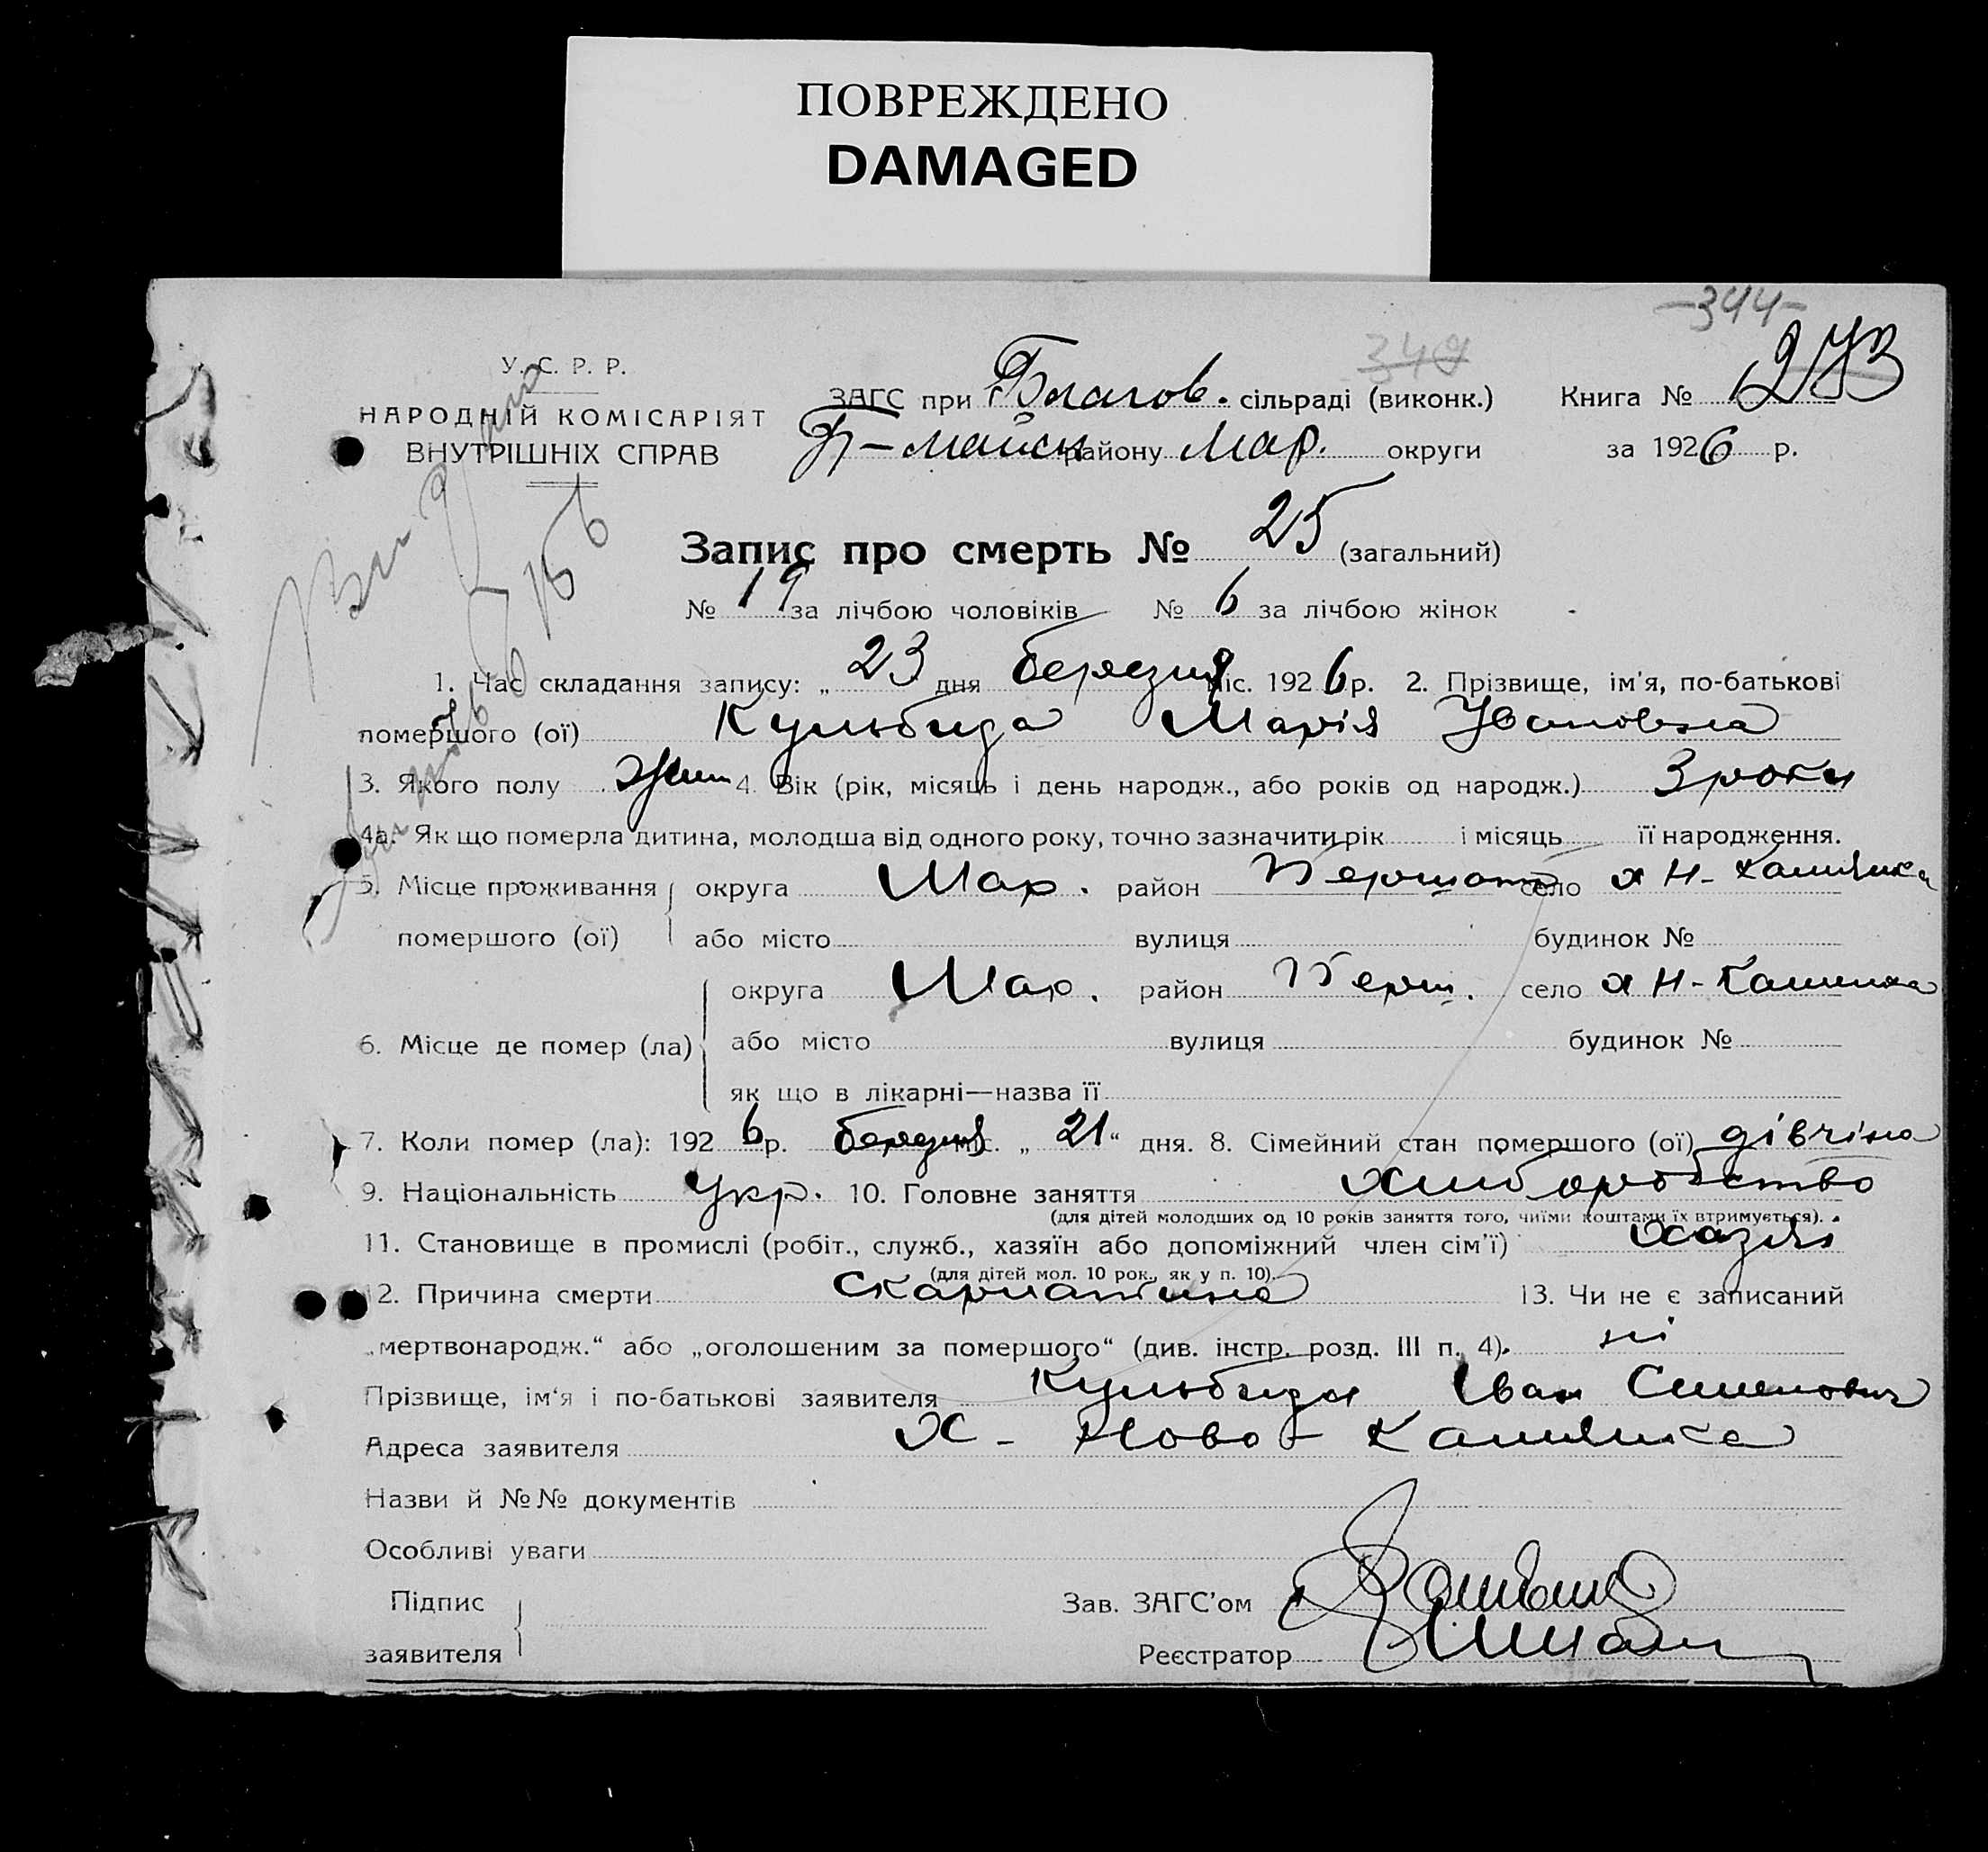 ПОВРЕЖДЕНО
DAMAGED
-344-
349
273
У. С. Р. Р.
НАРОДНІЙ КОМІСАРІЯТ
ВНУТРІШНІХ СПРАВ
ЗАГС при Благов. сільраді (виконк.) Книга №
П-майськ району Мар. округи за 1926 р.
Запис про смерть № 25 (загальний)
№ 19 за лічбою чоловіків № 6 за лічбою жінок
1. Час складання запису: „ 23 дня березня міс. 1926 р. 2. Прізвище, ім'я, по-батькові
помершого (ої) Кульбида Марія Ивановна
3. Якого полу жін 4. Вік (рік, місяць і день народж., або років од народж.) 3 роки
4а. Як що померла дитина, молодша від одного року, точно зазначити рік і місяць її народження.
5. Місце проживання помершого (ої) округа Мар. район Першот село х Н-Камянка
або місто вулиця будинок №
6. Місце де помер (ла) округа Мар. район Перш. село х Н-Камянка
або місто вулиця будинок №
як що в лікарні—назва її
7. Коли помер (ла): 1926 р. березня міс. „ 21 “ дня. 8. Сімейний стан помершого (ої) дівчіна
9. Національність Укр. 10. Головне заняття хлиборобство
(для дітей молодших од 10 років заняття того, чиїми коштами їх втримується).
11. Становище в промислі (робіт., служб., хазяїн або допоміжний член сім'ї) хазяїн
(для дітей мол. 10 рок., як у п. 10).
12. Причина смерти скарлатина 13. Чи не є записаний
„мертвонародж.“ або „оголошеним за помершого“ (див. інстр. розд. III п. 4). ні
Прізвище, ім'я і по-батькові заявителя Кульбида Іван Семенович
Адреса заявителя х - Ново-Камянка
Назви й №№ документів
Особливі уваги
Підпис заявителя
Зав. ЗАГС'ом
Реєстратор